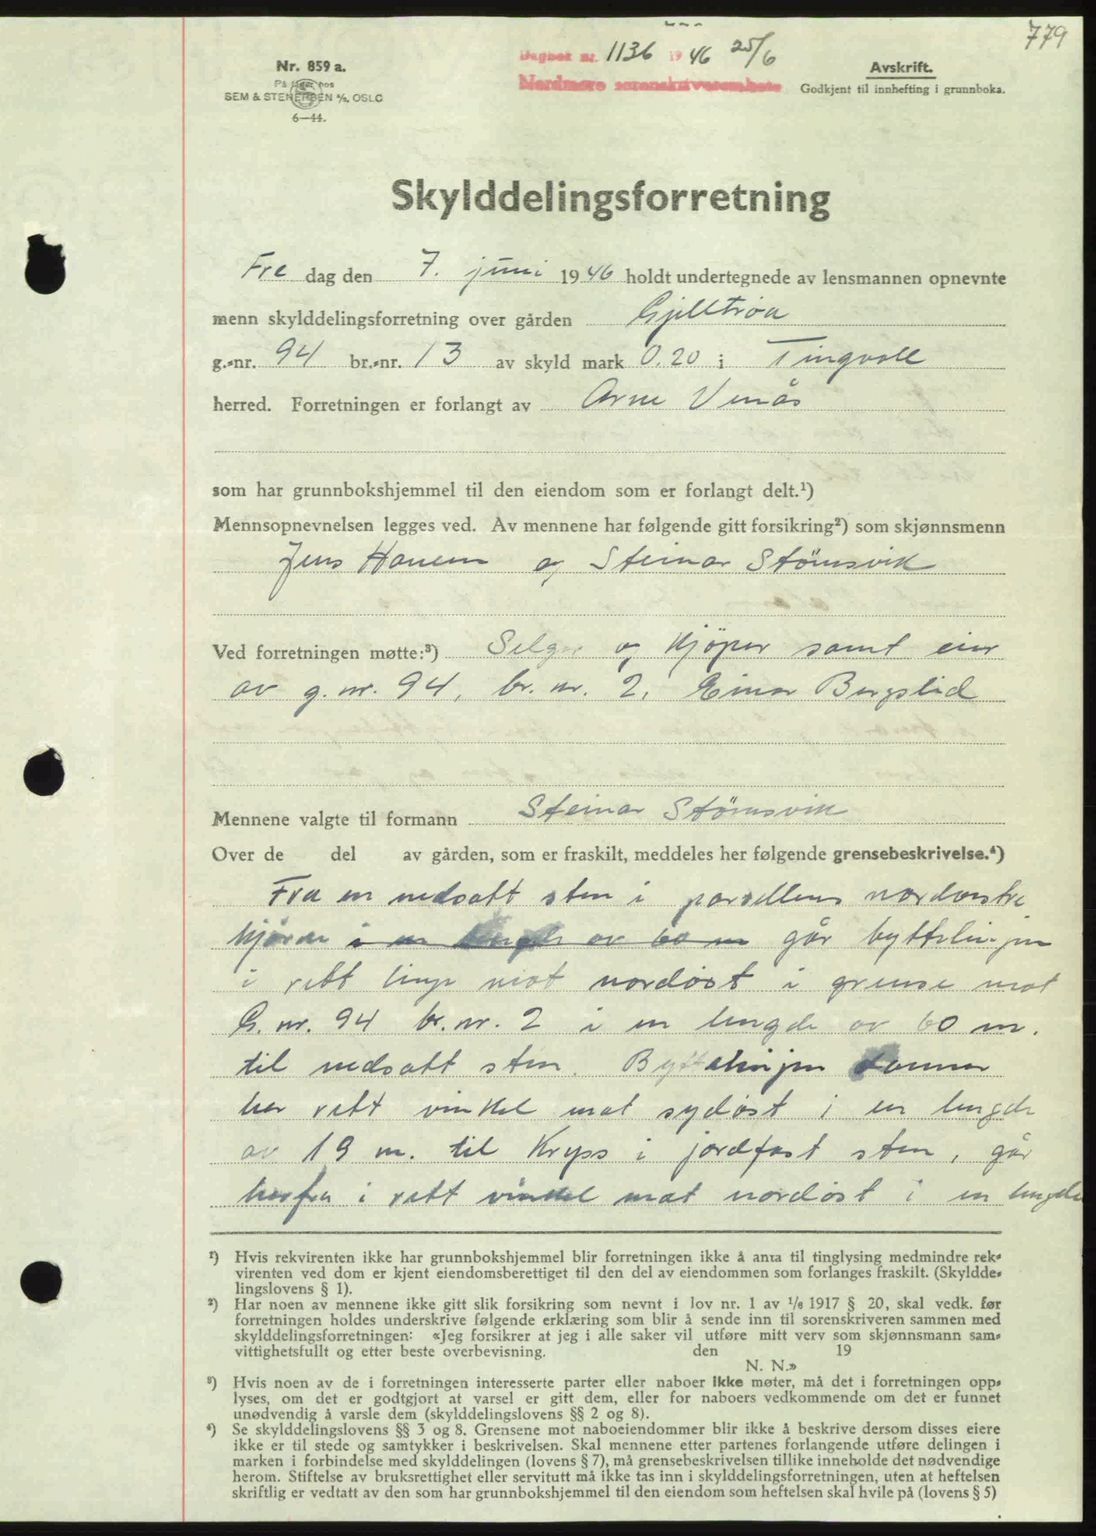 779
Nr. 859 a.
På lager hos
SEM & STENERSEN A/S, OSLO
6—44.
Dagbok nr. 1136 1946 25/6
Nordmøre sorenskriverembete
Avskrift.
Godkjent til innhefting i grunnboka.
Skylddelingsforretning
Fre dag den 7. juni 1946 holdt undertegnede av lensmannen opnevnte
menn skylddelingsforretning over gården Gjelltrøa
g.-nr. 94 br.-nr. 13 av skyld mark 0.20 i Tingvoll
herred. Forretningen er forlangt av Arne Venås
som har grunnbokshjemmel til den eiendom som er forlangt delt.¹)
Mennsopnevnelsen legges ved. Av mennene har følgende gitt forsikring²) som skjønnsmenn
Jens Hanem og Steinar Stömsvik
Ved forretningen møtte:³) Selger og Kjöper samt eier
av g. nr. 94, br. nr. 2, Einar Bergslid
Mennene valgte til formann Steinar Stömsvik
Over de del av gården, som er fraskilt, meddeles her følgende grensebeskrivelse.⁴)
Fra en nedsatt sten i parsellens nordvestre
hjörne i en lengde av 60 m går byttelinjen
i rett linje mot nordöst i grense mot
G. nr. 94 br. nr. 2 i en lengde av 60 m.
til nedsatt sten. Byttelinjen danner
her rett vinkel mot sydöst i en lengde
av 19 m. til Kryss i jordfast sten, går
herfra i rett vinkel mot nordöst i en lengde
¹) Hvis rekvirenten ikke har grunnbokshjemmel blir forretningen ikke å anta til tinglysing medmindre rek-
virenten ved dom er kjent eiendomsberettiget til den del av eiendommen som forlanges fraskilt. (Skyldde-
lingslovens § 1).
²) Har noen av mennene ikke gitt slik forsikring som nevnt i lov nr. 1 av 1/6 1917 § 20, skal vedk. før
forretningen holdes underskrive følgende erklæring som blir å sende inn til sorenskriveren sammen med
skylddelingsforretningen: «Jeg forsikrer at jeg i alle saker vil utføre mitt verv som skjønnsmann sam-
vittighetsfullt og etter beste overbevisning. den 19
N. N.»
³) Hvis noen av de i forretningen interesserte parter eller naboer ikke møter, må det i forretningen opp-
lyses, om det er godtgjort at varsel er gitt dem, eller for naboers vedkommende om det er funnet
unødvendig å varsle dem (skylddelingslovens §§ 2 og 8).
⁴) Se skylddelingslovens §§ 3 og 8. Grensene mot naboeiendommer blir ikke å beskrive dersom disses eiere
ikke er til stede og samtykker i beskrivelsen. Skal mennene etter partenes forlangende utføre delingen i
marken i forbindelse med skylddelingen (lovens § 7), må grensebeskrivelsen tillike inneholde det nødvendige
herom. Stiftelse av bruksrettighet eller servitutt må ikke tas inn i skylddelingsforretningen, uten at heftelsen
skriftlig er vedtatt av den som har grunnbokshjemmel til den eiendom som heftelsen skal hvile på (lovens § 5)